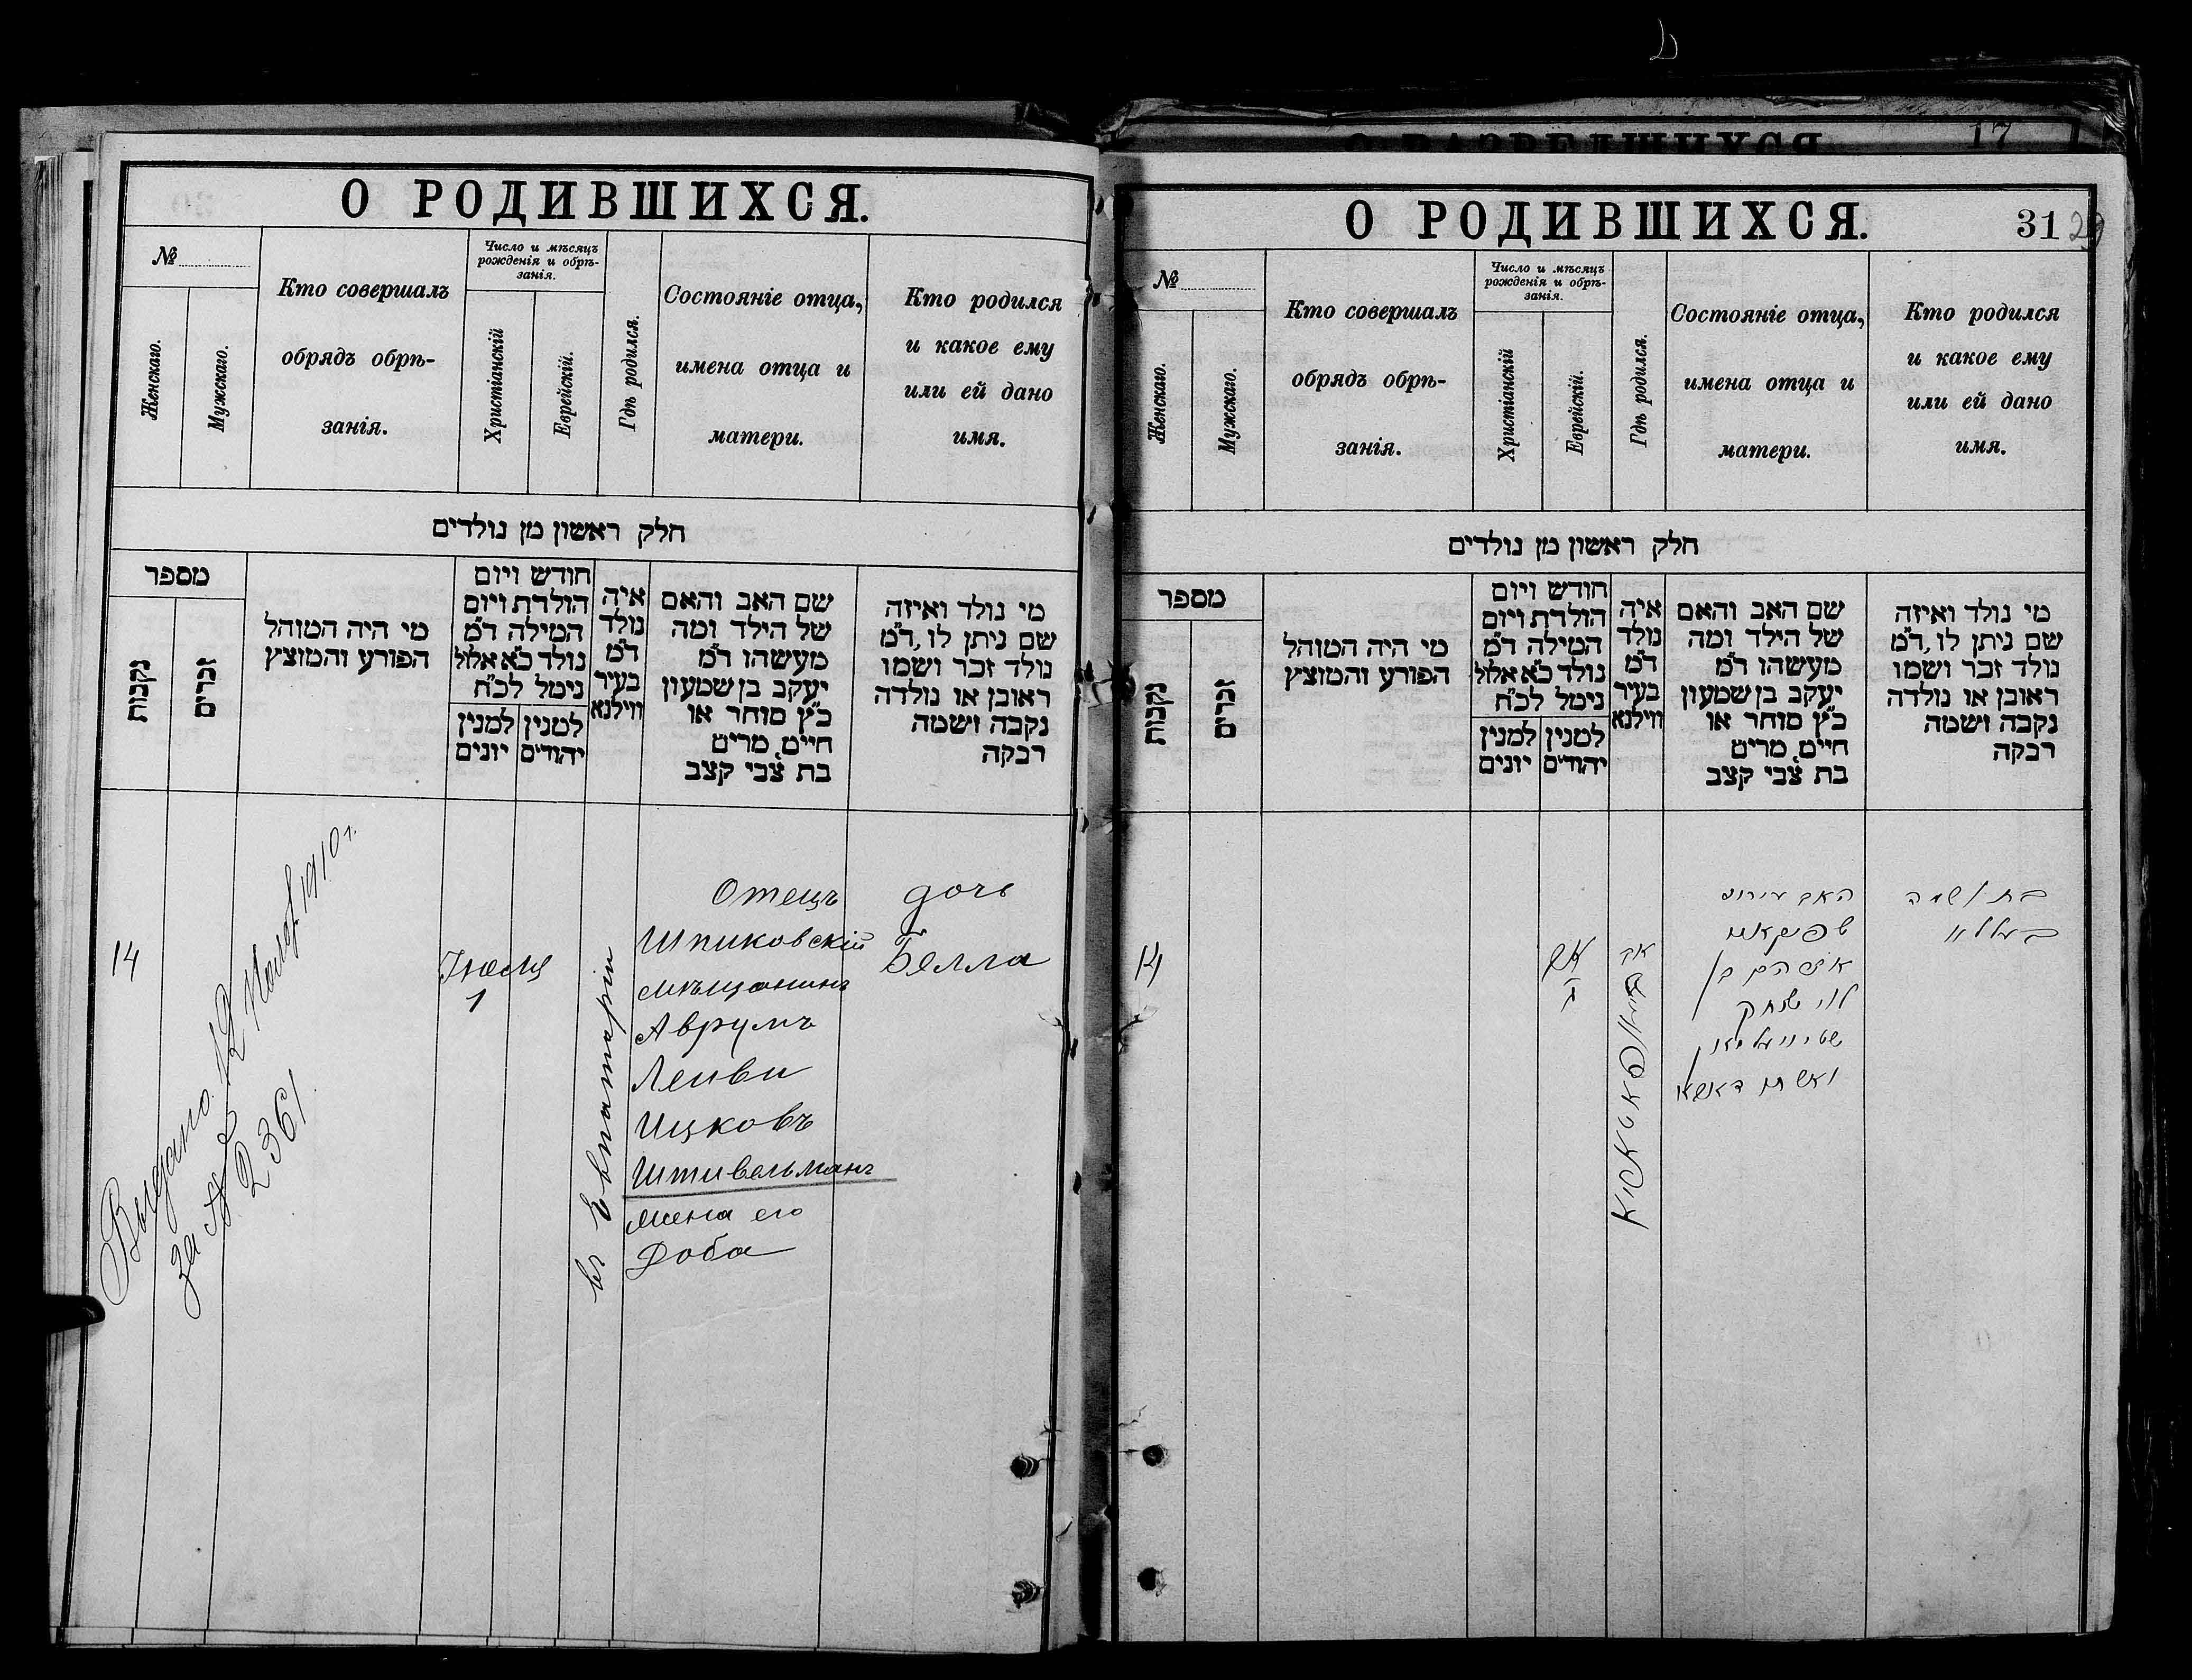 О РОДИВШИХСЯ.
№
Женскаго.
Мужскаго.
Кто совершалъ
обрядъ обрѣ-
занія.
Число и мѣсяцъ
рожденія и обрѣ-
занія.
Христіанскій
Еврейскій.
Гдѣ родился.
Состояніе отца,
имена отца и
матери.
Кто родился
и какое ему
или ей дано
имя.
חלק ראשון מן נולדים
מספר
נקבות
זכרים
מי היה המוהל
הפורע והמוצץ
חודש ויום
הולדת ויום
המילה ד״מ
נולד כ״א אלול
נימל לכ״ח
למנין יהודים
למנין יונים
איה
נולד
ד״מ
בעיר
ווילנא
שם האב והאם
של הילד ומה
מעשהו ד״מ
יעקב בן שמעון
כ״ץ סוחר או
חיים, מרים
בת צבי קצב
מי נולד ואיזה
שם ניתן לו, ד״מ
נולד זכר ושמו
ראובן או נולדה
נקבה ושמה
רבקה
14
Выдано 12
1910 г.
за № 2361
Іюля
1
въ Евпаторіи
Отецъ
Шпиковскій
мѣщанинъ
Аврумъ
Лейви
Ицковъ
Штивельманъ
жена его
Доба
дочь
Белла
17
О РОДИВШИХСЯ.
31
29
№
Женскаго.
Мужскаго.
Кто совершалъ
обрядъ обрѣ-
занія.
Число и мѣсяцъ
рожденія и обрѣ-
занія.
Христіанскій
Еврейскій.
Гдѣ родился.
Состояніе отца,
имена отца и
матери.
Кто родился
и какое ему
или ей дано
имя.
חלק ראשון מן נולדים
מספר
נקבות
זכרים
מי היה המוהל
הפורע והמוצץ
חודש ויום
הולדת ויום
המילה ד״מ
נולד כ״א אלול
נימל לכ״ח
למנין יהודים
למנין יונים
איה
נולד
ד״מ
בעיר
ווילנא
שם האב והאם
של הילד ומה
מעשהו ד״מ
יעקב בן שמעון
כ״ץ סוחר או
חיים, מרים
בת צבי קצב
מי נולד ואיזה
שם ניתן לו, ד״מ
נולד זכר ושמו
ראובן או נולדה
נקבה ושמה
רבקה
14
האב
אברהם בן
לוי יצחק
שטיוועלמאן
בת ושמה
בעללא